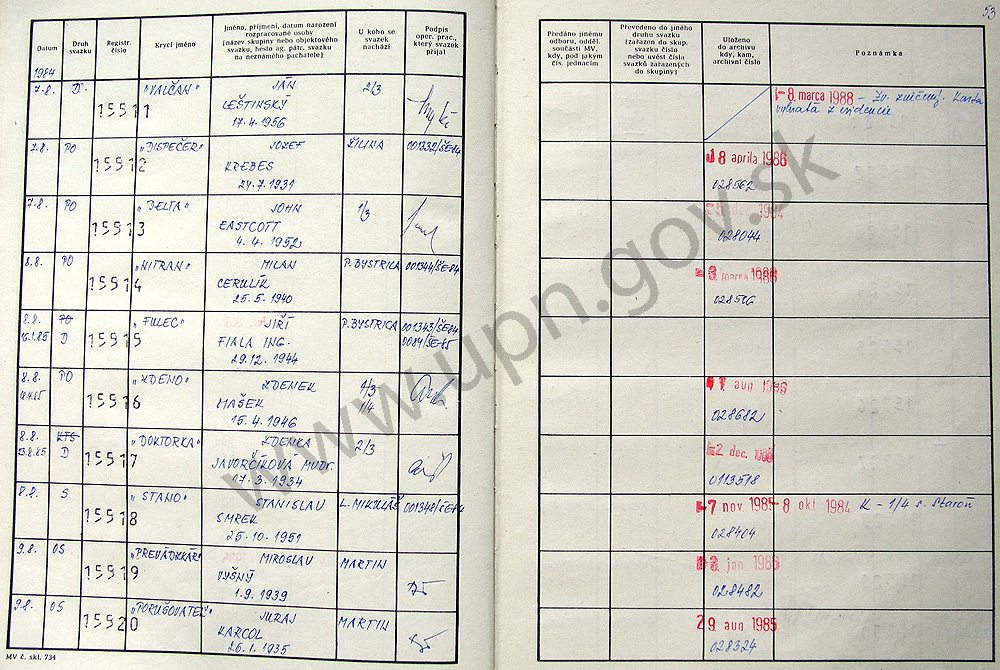 53
Datum
Druh svazku
Registr. číslo
Krycí jméno
Jméno, příjmení, datum narození
rozpracované osoby
(název skupiny nebo objektového
svazku, heslo ag. pátr. svazku
na neznámého pachatele)
U koho se
svazek
nachází
Podpis
oper. prac.,
který svazek
přijal
Předáno jinému
odboru, odděl.
součásti MV,
kdy, pod jakým
čís. jednacím
Převedeno do jiného
druhu svazku
(zařazen do skup.
svazku číslo
nebo uvést čísla
svazků zařazených
do skupiny)
Uloženo
do archivu
kdy, kam,
archivní číslo
Poznámka
1984
7.8. D. 15511 "VALČAN" JÁN 2/3
LEŠTINSKÝ
17.4.1956
8. marca 1988 - Zv. zničený. Karta
vybratá z evidencie
7.8. PO 15512 "DISPEČER" JOZEF ŽILINA 001332/ŠE-84
KREBES
24.7.1931
18 apríla 1986
028562
7.8. PO 15513 "DELTA" JOHN 1/3
EASTCOTT
4.4.1952
1984
028044
8.8. PO 15514 "NITRAN" MILAN P. BYSTRICA 001344/ŠE-84
CERULÍK
25.5.1940
3. marca 1986
028506
8.8. PO 15515 "FULEC" JIŘÍ P. BYSTRICA 001343/ŠE-84
16.1.85 D FIALA ING. 0084/ŠE-85
29.12.1944
8.8. PO 15516 "ZDENO" ZDENEK 1/3
MAŠEK 1/4
15.4.1946
aug 1986
028682
8.8. KTS 15517 "DOKTORKA" ZDENKA 2/3
23.8.85 D JAVORČÍKOVÁ MUDR.
17.3.1934
2 dec.
0113518
8.8. S 15518 "STANO" STANISLAV L. MIKULÁŠ 001348/ŠE-84
SMREK
25.10.1951
7 nov 1985 - 8 okt 1984 K - 1/4 s. Staroň
028404
9.8. OS 15519 "PREVÁDKÁR" MIROSLAV MARTIN
VYŠNÝ
1.9.1939
3 jan. 1986
028482
9.8. OS 15520 "PORUŠOVATEĽ" JURAJ MARTIN
KARCOL
26.1.1935
29 aug 1985
028324
MV č. skl. 734
www.upn.gov.sk